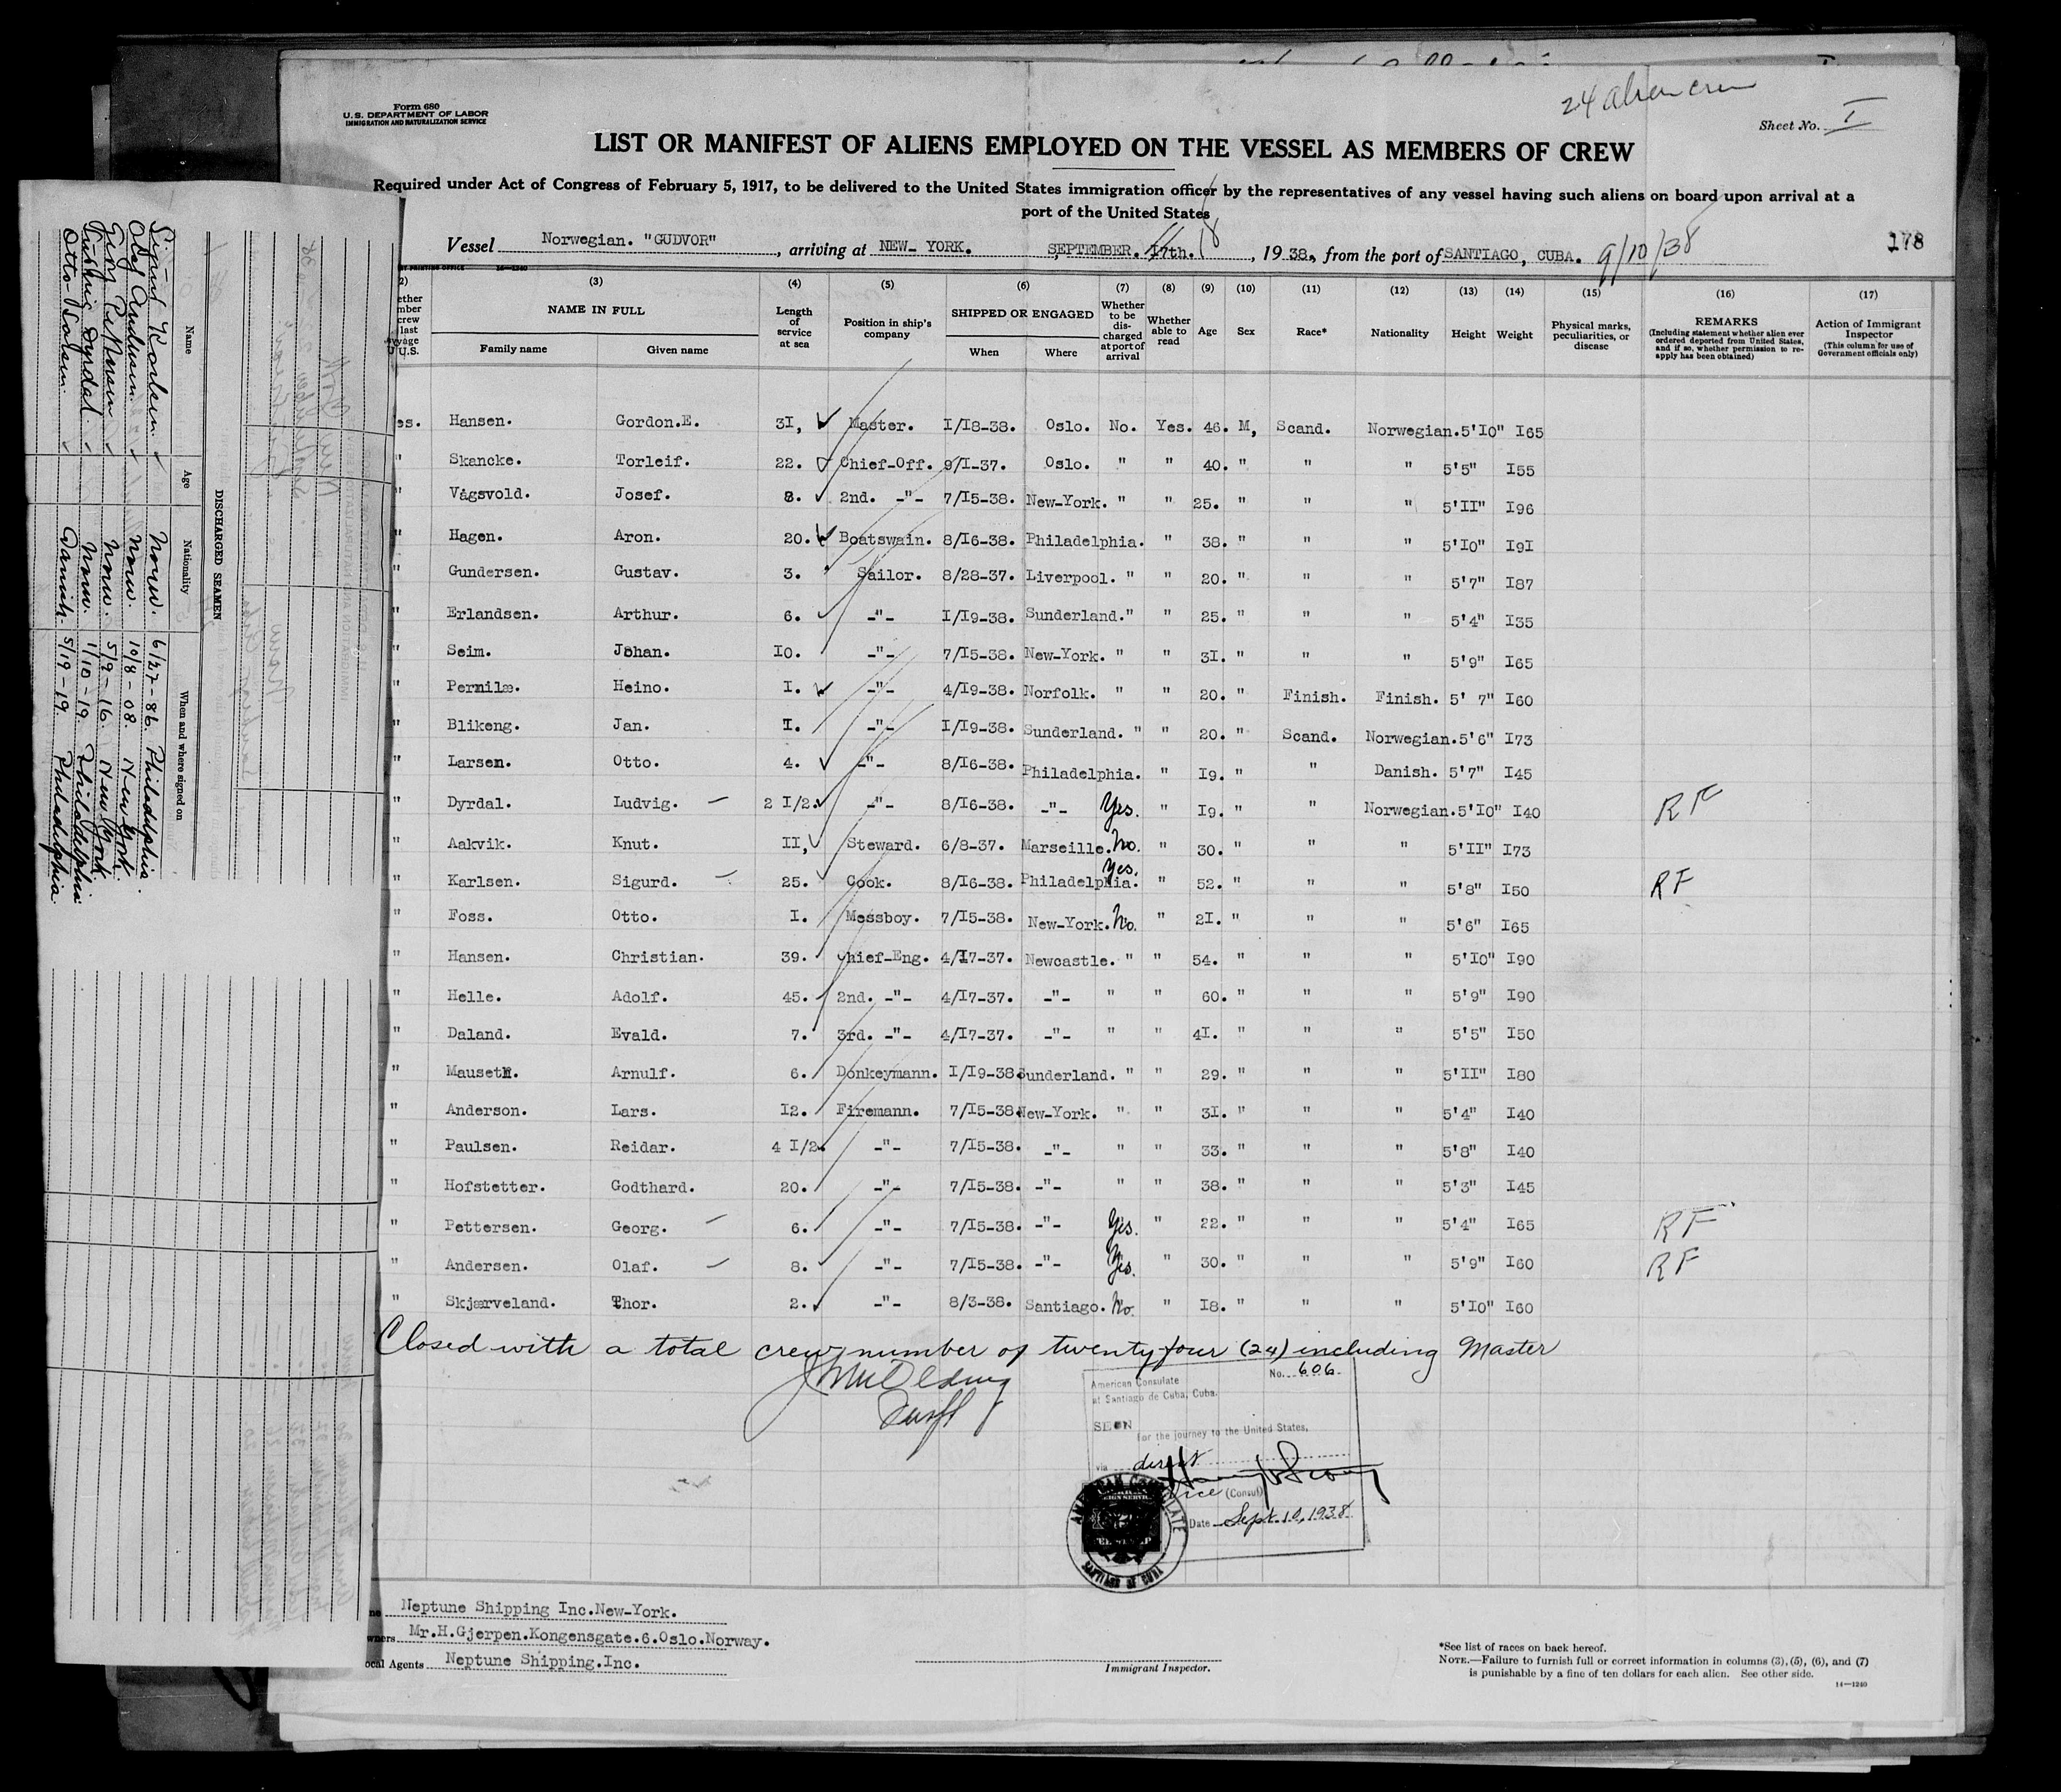 24 alien crew
Form 680
U.S. DEPARTMENT OF LABOR
IMMIGRATION AND NATURALIZATION SERVICE
Sheet No. I
LIST OR MANIFEST OF ALIENS EMPLOYED ON THE VESSEL AS MEMBERS OF CREW
Required under Act of Congress of February 5, 1917, to be delivered to the United States immigration officer by the representatives of any vessel having such aliens on board upon arrival at a
port of the United States
Vessel Norwegian. "GUDVOR", arriving at NEW-YORK. SEPTEMBER. 17th. 18, 1938., from the port of SANTIAGO, CUBA. 9/10/38
178
(2) (3) (4) (5) (6) (7) (8) (9) (10) (11) (12) (13) (14) (15) (16) (17)
NAME IN FULL
Family name Given name
Length of service at sea
Position in ship's company
SHIPPED OR ENGAGED
When Where
Whether to be discharged at port of arrival
Whether able to read
Age Sex Race* Nationality Height Weight
Physical marks, peculiarities, or disease
REMARKS
(Including statement whether alien ever ordered deported from United States, and if so, whether permission to reapply has been obtained)
Action of Immigrant Inspector
(This column for use of Government officials only)
es. Hansen. Gordon.E. 3I, Master. I/I8-38. Oslo. No. Yes. 46. M, Scand. Norwegian. 5'IO" I65
" Skancke. Torleif. 22. Chief-Off. 9/I-37. Oslo. " " 40. " " " 5'5" I55
" Vågsvold. Josef. 8. 2nd. -"- 7/I5-38. New-York. " " 25. " " " 5'II" I96
" Hagen. Aron. 20. Boatswain. 8/I6-38. Philadelphia. " 38. " " " 5'IO" I9I
" Gundersen. Gustav. 3. Sailor. 8/28-37. Liverpool. " " 20. " " " 5'7" I87
" Erlandsen. Arthur. 6. -"- I/I9-38. Sunderland. " " 25. " " " 5'4" I35
" Seim. Johan. IO. -"- 7/I5-38. New-York. " " 3I. " " " 5'9" I65
" Pernilæ. Heino. I. -"- 4/I9-38. Norfolk. " " 20. " Finish. Finish. 5' 7" I60
" Blikeng. Jan. I. -"- I/I9-38. Sunderland. " " 20. " Scand. Norwegian. 5'6" I73
" Larsen. Otto. 4. -"- 8/I6-38. Philadelphia. " I9. " " Danish. 5'7" I45
" Dyrdal. Ludvig. 2 I/2. -"- 8/I6-38. -"- Yes. " I9. " " Norwegian. 5'IO" I40 RF
" Aakvik. Knut. II, Steward. 6/8-37. Marseille. No. " 30. " " " 5'II" I73
" Karlsen. Sigurd. 25. Cook. 8/I6-38. Philadelphia. Yes. " 52. " " " 5'8" I50 RF
" Foss. Otto. I. Messboy. 7/I5-38. New-York. No. " 2I. " " " 5'6" I65
" Hansen. Christian. 39. Chief-Eng. 4/I7-37. Newcastle. " " 54. " " " 5'IO" I90
" Helle. Adolf. 45. 2nd. -"- 4/I7-37. -"- " " 60. " " " 5'9" I90
" Daland. Evald. 7. 3rd. -"- 4/I7-37. -"- " " 4I. " " " 5'5" I50
" Mauseth. Arnulf. 6. Donkeymann. I/I9-38. Sunderland. " " 29. " " " 5'II" I80
" Anderson. Lars. I2. Firemann. 7/I5-38. New-York. " " 3I. " " " 5'4" I40
" Paulsen. Reidar. 4 I/2. -"- 7/I5-38. -"- " " 33. " " " 5'8" I40
" Hofstetter. Godthard. 20. -"- 7/I5-38. -"- " " 38. " " " 5'3" I45
" Pettersen. Georg. 6. -"- 7/I5-38. -"- Yes. " 22. " " " 5'4" I65 RF
" Andersen. Olaf. 8. -"- 7/I5-38. -"- Yes. " 30. " " " 5'9" I60 RF
" Skjærveland. Thor. 2. -"- 8/3-38. Santiago. No. " I8. " " " 5'IO" I60
Closed with a total crew number of twenty four (24) including Master
American Consulate
at Santiago de Cuba, Cuba.
No. 606
SEEN
for the journey to the United States,
via direct
Vice (Consul)
Date Sept. 10, 1938
AMERICAN CONSULATE
Neptune Shipping Inc.New-York.
wners Mr.H.Gjerpen.Kongensgate.6.Oslo.Norway.
ocal Agents Neptune Shipping.Inc.
Immigrant Inspector.
*See list of races on back hereof.
NOTE.—Failure to furnish full or correct information in columns (3), (5), (6), and (7)
is punishable by a fine of ten dollars for each alien. See other side.
14—1240
DISCHARGED SEAMEN
Name Age Nationality When and where signed on
Sigurd Karlsen Norw. 6/27-86. Philadelphia.
Olaf Andersen Norw. 10/8-08. New York.
Georg Pettersen Norw. 5/9-16. New York.
Ludvig Dyrdal Norw. 1/10-19. Philadelphia
Otto Larsen Danish. 5/19-19. Philadelphia.